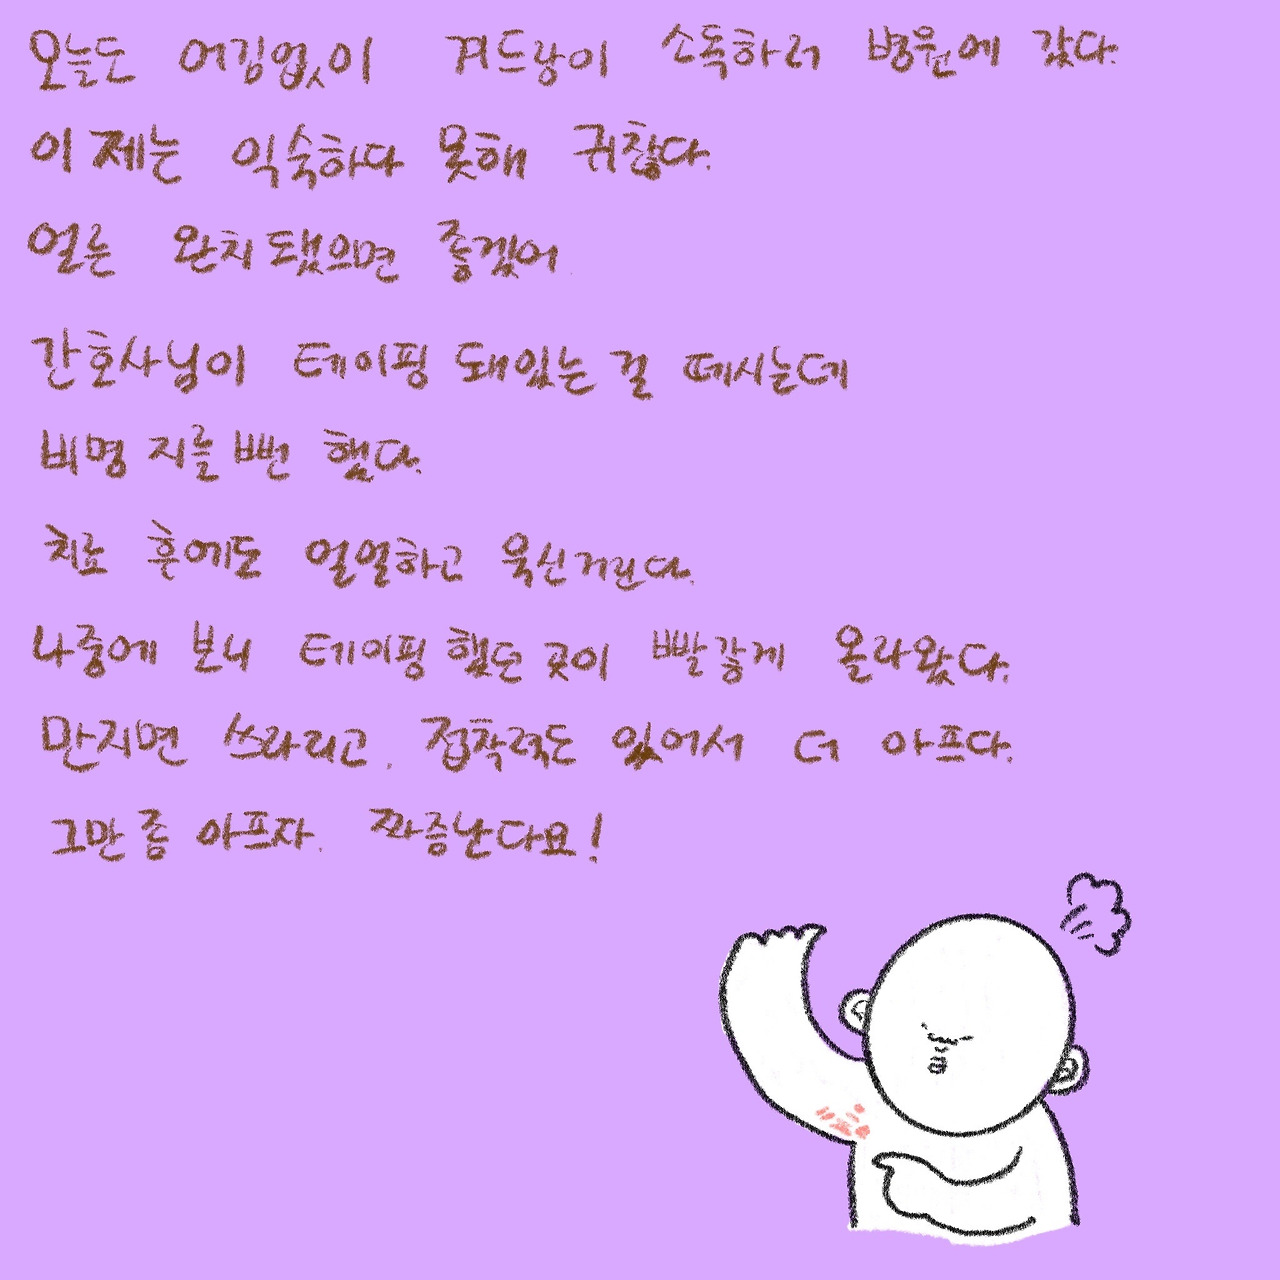 오늘도 어김없이 겨드랑이 소독하러 병원에 갔다.
이제는 익숙하다 못해 귀찮다.
얼른 완치됐으면 좋겠어.
간호사님이 테이핑 돼있는 걸 떼시는데
비명 지를뻔 했다.
치료 후에도 얼얼하고 욱신거린다.
나중에 보니 테이핑 했던 곳이 빨갛게 올라왔다.
만지면 쓰라리고. 접착력도 있어서 더 아프다.
그만 좀 아프자. 짜증난다요!